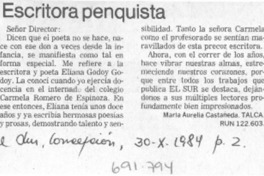 Escritora penquista
Señor Director:
Dicen que el poeta no se hace, na-
ce con ese don a veces desde la in-
fancia, se manifiesta como tal en
forma especial. Me refiero a la
escritora y poeta Eliana Godoy Go-
doy. La conocí cuando yo ejercía do-
cencia en el internado del colegio
Carmela Romero de Espinoza. En
ese entonces, Eliana tenía unos doce
años y ya escribía hermosas poesías
y prosas, demostrando talento y sen-
sibilidad. Tanto la señora Carmela
como el profesorado se sentían ma-
ravillados de esta precoz escritora.
Ahora, con el correr de los años,
hace vibrar nuestras almas, estre-
meciendo nuestros corazones, por-
que entre los trabajos que
publica EL SUR se destaca, deján-
donos a sus múltiples lectores pro-
fundamente impresionados.
María Aurelia Castañeda. TALCA.
RUN 122.603.
Sur, Concepción, 30-X-1984 p. 2.
691.794